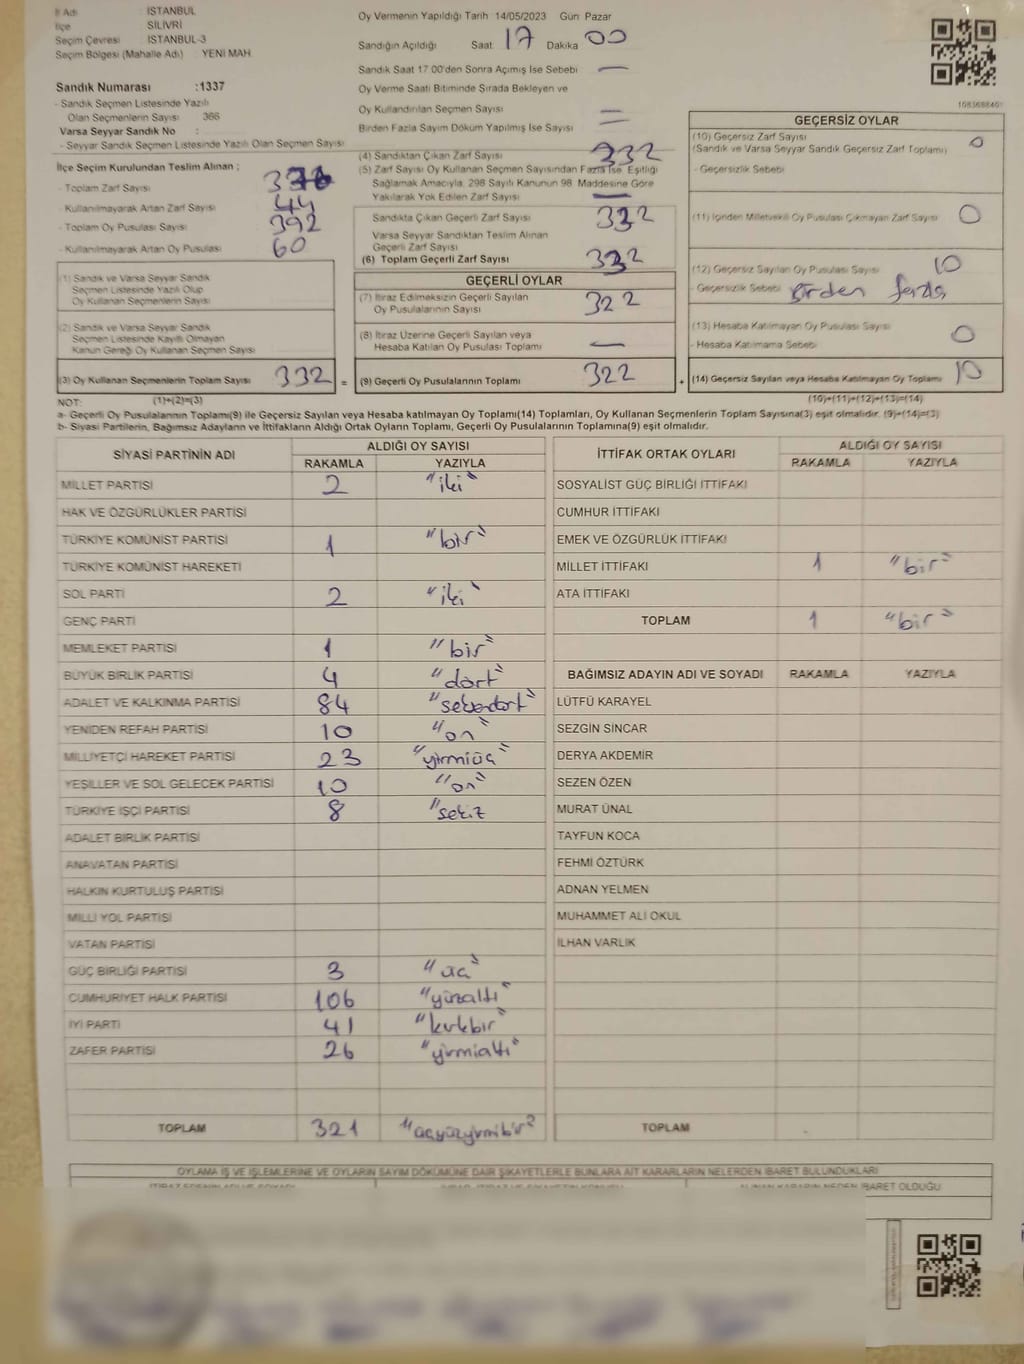 İl Adı : İSTANBUL
İlçe SİLİVRİ
Seçim Çevresi İSTANBUL-3
Seçim Bölgesi (Mahalle Adı) : YENİ MAH.
Sandık Numarası :1337
- Sandık Seçmen Listesinde Yazılı
Olan Seçmenlerin Sayısı 366
Varsa Seyyar Sandık No :
- Seyyar Sandık Seçmen Listesinde Yazılı Olan Seçmen Sayısı
İlçe Seçim Kurulundan Teslim Alınan ;
- Toplam Zarf Sayısı
- Kullanılmayarak Artan Zarf Sayısı 44
- Toplam Oy Pusulası Sayısı 392
- Kullanılmayarak Artan Oy Pusulası 60
(1) Sandık ve Varsa Seyyar Sandık
Seçmen Listesinde Yazılı Olup
Oy Kullanan Seçmenlerin Sayısı
(2) Sandık ve Varsa Seyyar Sandık
Seçmen Listesinde Kayıtlı Olmayan
Kanun Gereği Oy Kullanan Seçmen Sayısı
(3) Oy Kullanan Seçmenlerin Toplam Sayısı 332 =
Oy Vermenin Yapıldığı Tarih 14/05/2023 Gün Pazar
Sandığın Açıldığı Saat 17 Dakika 00
Sandık Saat 17.00'den Sonra Açımış İse Sebebi —
Oy Verme Saati Bitiminde Sırada Bekleyen ve
Oy Kullandırılan Seçmen Sayısı —
Birden Fazla Sayım Döküm Yapılmış İse Sayısı —
(4) Sandıktan Çıkan Zarf Sayısı 332
(5) Zarf Sayısı Oy Kullanan Seçmen Sayısından Fazla İse, Eşitliği
Sağlamak Amacıyla, 298 Sayılı Kanunun 98. Maddesine Göre
Yakılarak Yok Edilen Zarf Sayısı —
Sandıkta Çıkan Geçerli Zarf Sayısı 332
Varsa Seyyar Sandıktan Teslim Alınan
Geçerli Zarf Sayısı
(6) Toplam Geçerli Zarf Sayısı 332
GEÇERLİ OYLAR
(7) İtiraz Edilmeksizin Geçerli Sayılan
Oy Pusulalarının Sayısı 322
(8) İtiraz Üzerine Geçerli Sayılan veya
Hesaba Katılan Oy Pusulası Toplamı —
(9) Geçerli Oy Pusulalarının Toplamı 322 +
GEÇERSİZ OYLAR
(10) Geçersiz Zarf Sayısı 0
(Sandık ve Varsa Seyyar Sandık Geçersiz Zarf Toplamı)
- Geçersizlik Sebebi
(11) İçinden Milletvekili Oy Pusulası Çıkmayan Zarf Sayısı 0
(12) Geçersiz Sayılan Oy Pusulası Sayısı 10
- Geçersizlik Sebebi Birden fazla
(13) Hesaba Katılmayan Oy Pusulası Sayısı 0
- Hesaba Katılmama Sebebi
(14) Geçersiz Sayılan veya Hesaba Katılmayan Oy Toplamı 10
NOT: (1)+(2)=(3) (10)+(11)+(12)+(13)=(14)
a- Geçerli Oy Pusulalarının Toplamı(9) ile Geçersiz Sayılan veya Hesaba katılmayan Oy Toplamı(14) Toplamları, Oy Kullanan Seçmenlerin Toplam Sayısına(3) eşit olmalıdır. (9)+(14)=(3)
b- Siyasi Partilerin, Bağımsız Adayların ve İttifakların Aldığı Ortak Oyların Toplamı, Geçerli Oy Pusulalarının Toplamına(9) eşit olmalıdır.
SİYASİ PARTİNİN ADI ALDIĞI OY SAYISI
RAKAMLA YAZIYLA
MİLLET PARTİSİ 2 "iki"
HAK VE ÖZGÜRLÜKLER PARTİSİ
TÜRKİYE KOMÜNİST PARTİSİ 1 "bir"
TÜRKİYE KOMÜNİST HAREKETİ
SOL PARTİ 2 "iki"
GENÇ PARTİ
MEMLEKET PARTİSİ 1 "bir"
BÜYÜK BİRLİK PARTİSİ 4 "dört"
ADALET VE KALKINMA PARTİSİ 84 "seksendört"
YENİDEN REFAH PARTİSİ 10 "on"
MİLLİYETÇİ HAREKET PARTİSİ 23 "yirmiüç"
YEŞİLLER VE SOL GELECEK PARTİSİ 10 "on"
TÜRKİYE İŞÇİ PARTİSİ 8 "sekiz
ADALET BİRLİK PARTİSİ
ANAVATAN PARTİSİ
HALKIN KURTULUŞ PARTİSİ
MİLLİ YOL PARTİSİ
VATAN PARTİSİ
GÜÇ BİRLİĞİ PARTİSİ 3 "üç"
CUMHURİYET HALK PARTİSİ 106 "yüzaltı"
İYİ PARTİ 41 "kırkbir"
ZAFER PARTİSİ 26 "yirmialtı"
TOPLAM 321 "üçyüzyirmibir"
İTTİFAK ORTAK OYLARI ALDIĞI OY SAYISI
RAKAMLA YAZIYLA
SOSYALİST GÜÇ BİRLİĞİ İTTİFAKI
CUMHUR İTTİFAKI
EMEK VE ÖZGÜRLÜK İTTİFAKI
MİLLET İTTİFAKI 1 "bir"
ATA İTTİFAKI
TOPLAM 1 "bir"
BAĞIMSIZ ADAYIN ADI VE SOYADI RAKAMLA YAZIYLA
LÜTFÜ KARAYEL
SEZGİN SİNCAR
DERYA AKDEMİR
SEZEN ÖZEN
MURAT ÜNAL
TAYFUN KOCA
FEHMİ ÖZTÜRK
ADNAN YELMEN
MUHAMMET ALİ OKUL
İLHAN VARLIK
TOPLAM
OYLAMA İŞ VE İŞLEMLERİNE VE OYLARIN SAYIM DÖKÜMÜNE DAİR ŞİKAYETLERLE BUNLARA AİT KARARLARIN NELERDEN İBARET BULUNDUKLARI
ALINAN KARARIN NEDEN İBARET OLDUĞU